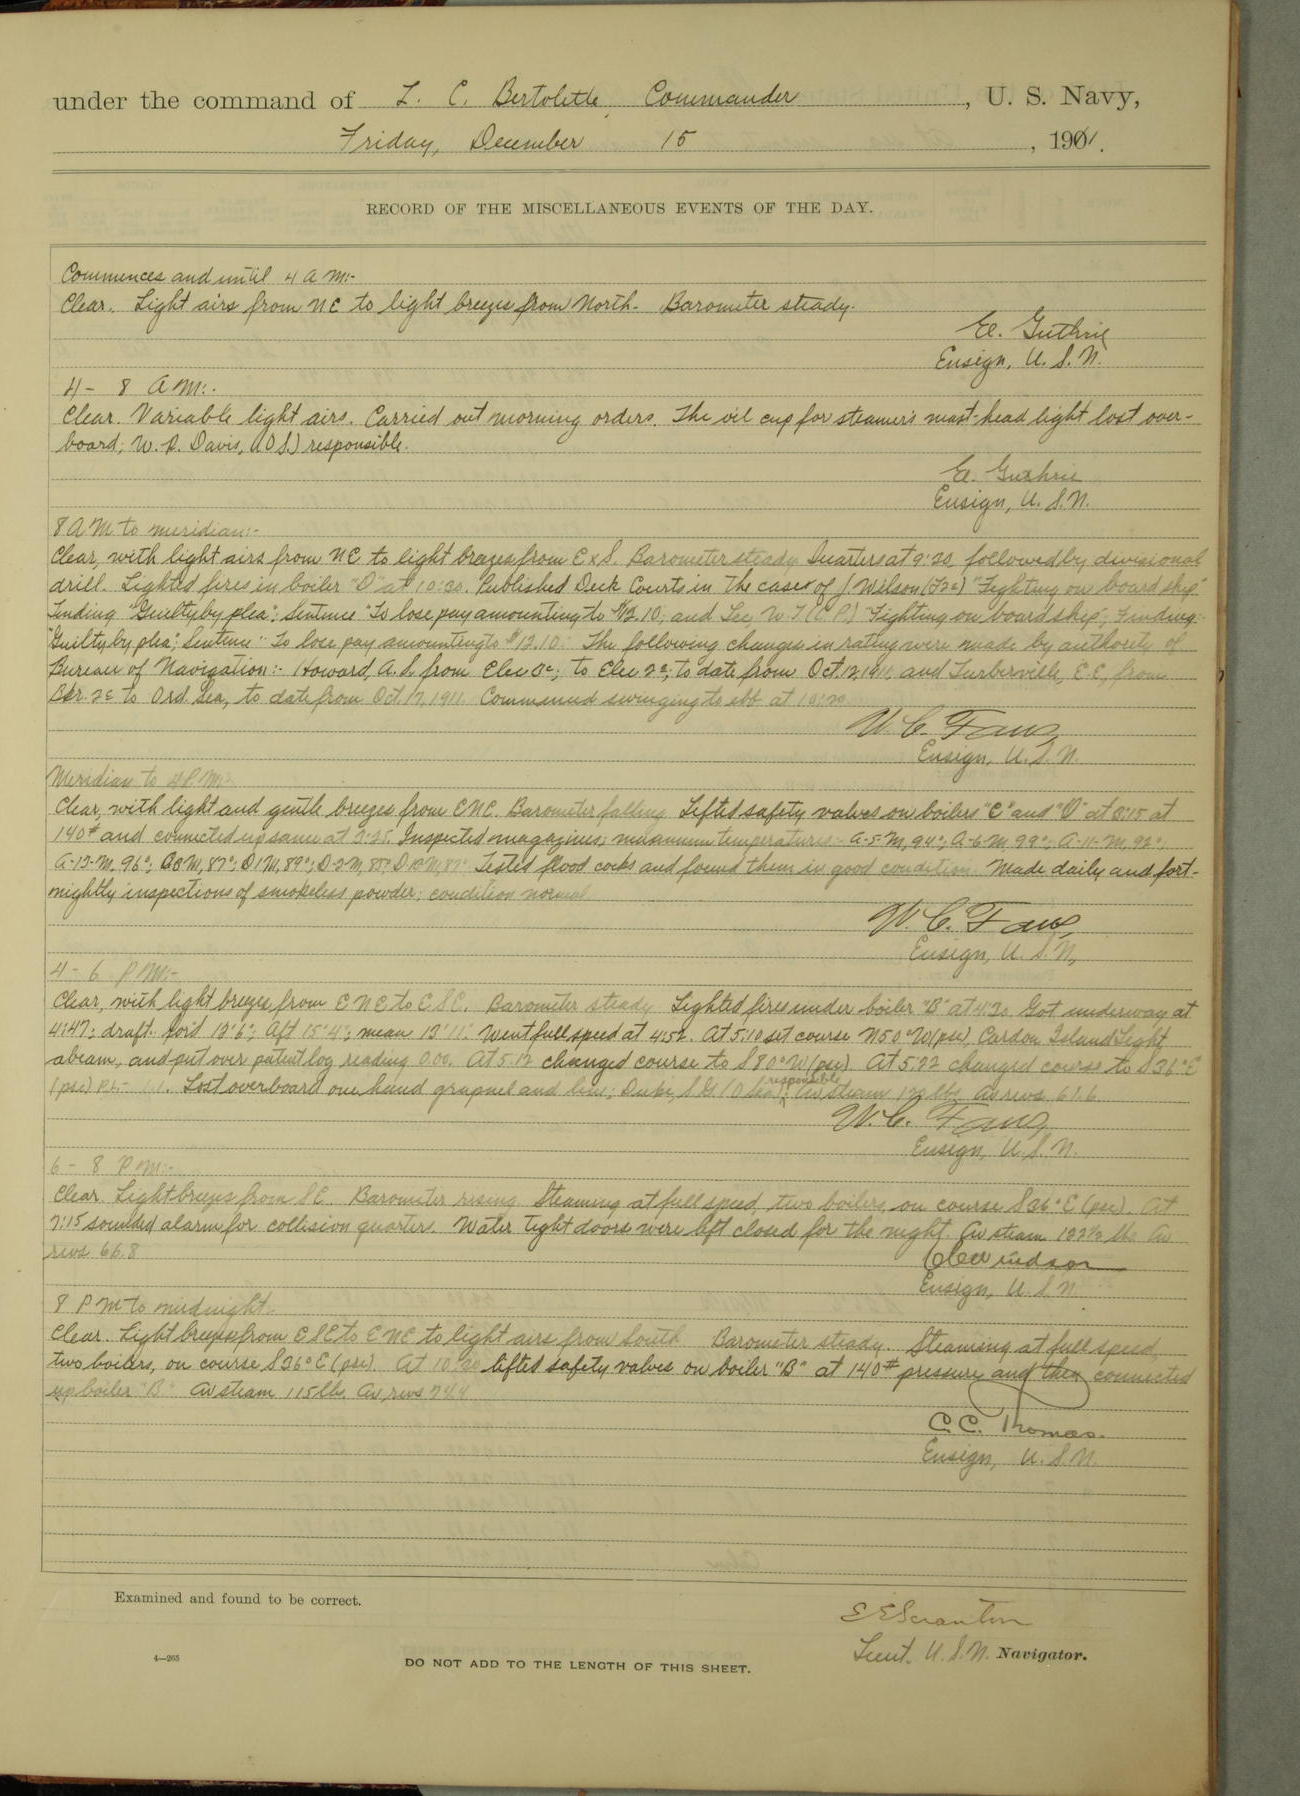 under the command of L. C. Bertolette, Commander, U. S. Navy,
Friday, December 15, 1901.
RECORD OF THE MISCELLANEOUS EVENTS OF THE DAY.
Commences and until 4 A M:-
Clear. Light airs from NE to light breezes from North. Barometer steady.
E. Guthrie
Ensign, U. S. N.
4 - 8 A M:-
Clear. Variable light airs. Carried out morning orders. The oil cup for steamer's mast-head light lost over-
board; W. R. Davis, (O.S.) responsible.
E. Guthrie
Ensign, U. S. N.
8 A M to meridian:-
Clear, with light airs from NE to light breezes from E x S. Barometer steady. Quarters at 9:20, followed by divisional
drill. Lighted fires in boiler "D" at 10:30. Published Deck Courts in the cases of J. Wilson (F2c) "Fighting on board ship"
Finding "Guilty by plea"; Sentence "To lose pay amounting to $13.10; and Lee, W. T. (C.P.) "Fighting on board ship", Finding:-
"Guilty by plea"; Sentence "To lose pay amounting to $12.10." The following changes in rating were made by authority of
Bureau of Navigation:- Howard, A. S. from Elec 3c; to Elec 2c; to date from Oct. 12, 1911, and Turberville, E. E., from
2c to Ord. Sea, to date from Oct. 17, 1911. Commenced swinging to ebb at 10:20
W. C.
Ensign, U. S. N.
Meridian to 4 P M:-
Clear, with light and gentle breezes from ENE. Barometer falling. Lifted safety valves on boilers "C" and "D" at 3:15 at
140# and connected up same at 3:25. Inspected magazines; maximum temperatures:- A-5-M, 94°; A-6-M, 99°; A-11-M, 92°;
A-12-M, 96°; 87°; D1M, 89°; D-2-M, 85°; Tested flood cocks and found them in good condition. Made daily and fort-
nightly inspections of smokeless powder; condition normal.
W. C.
Ensign, U. S. N.
4 - 6 P M:-
Clear, with light breezes from ENE to ESE. Barometer steady. Lighted fires under boiler "B" at 4:30. Got underway at
4:47; draft. for'd 12'6"; Aft 15'4"; mean 13'11". Went full speed at 4:52. At 5:10 set course N50°W (psc) Cardon Island Light
abeam, and put over patent log reading 0.00. At 5:12 changed course to S80°W (psc) At 5:22 changed course to S36°E
(psc) P.L.- 1.1. Lost overboard one hand grapnel and line; responsible Av steam lbs. Av revs 61.6
W. C.
Ensign, U. S. N.
6 - 8 P M:-
Clear. Light breezes from SE. Barometer rising. Steaming at full speed, two boilers, on course S36°E (psc). At
7:15 sounded alarm for collision quarters. Water tight doors were left closed for the night. Av steam 122½ lbs. Av
revs 66.8
Ensign, U. S. N.
8 P M to midnight.
Clear. Light breezes from ESE to ENE to light airs from South. Barometer steady. Steaming at full speed,
two boilers, on course S36°E (psc). At 10:30 lifted safety valves on boiler "B" at 140# pressure and then connected
up boiler "B". Av steam 115 lbs. Av. revs 74.4
C. C. Thomas.
Ensign, U. S. N.
Examined and found to be correct.
E E Scranton
Lieut. U. S. N. Navigator.
4—265
DO NOT ADD TO THE LENGTH OF THIS SHEET.